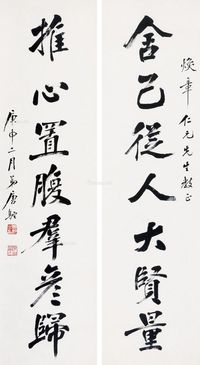 煥章仁兄先生教正
舍己從人大賢量
推心置腹羣彥歸
庚申二月弟唐馳